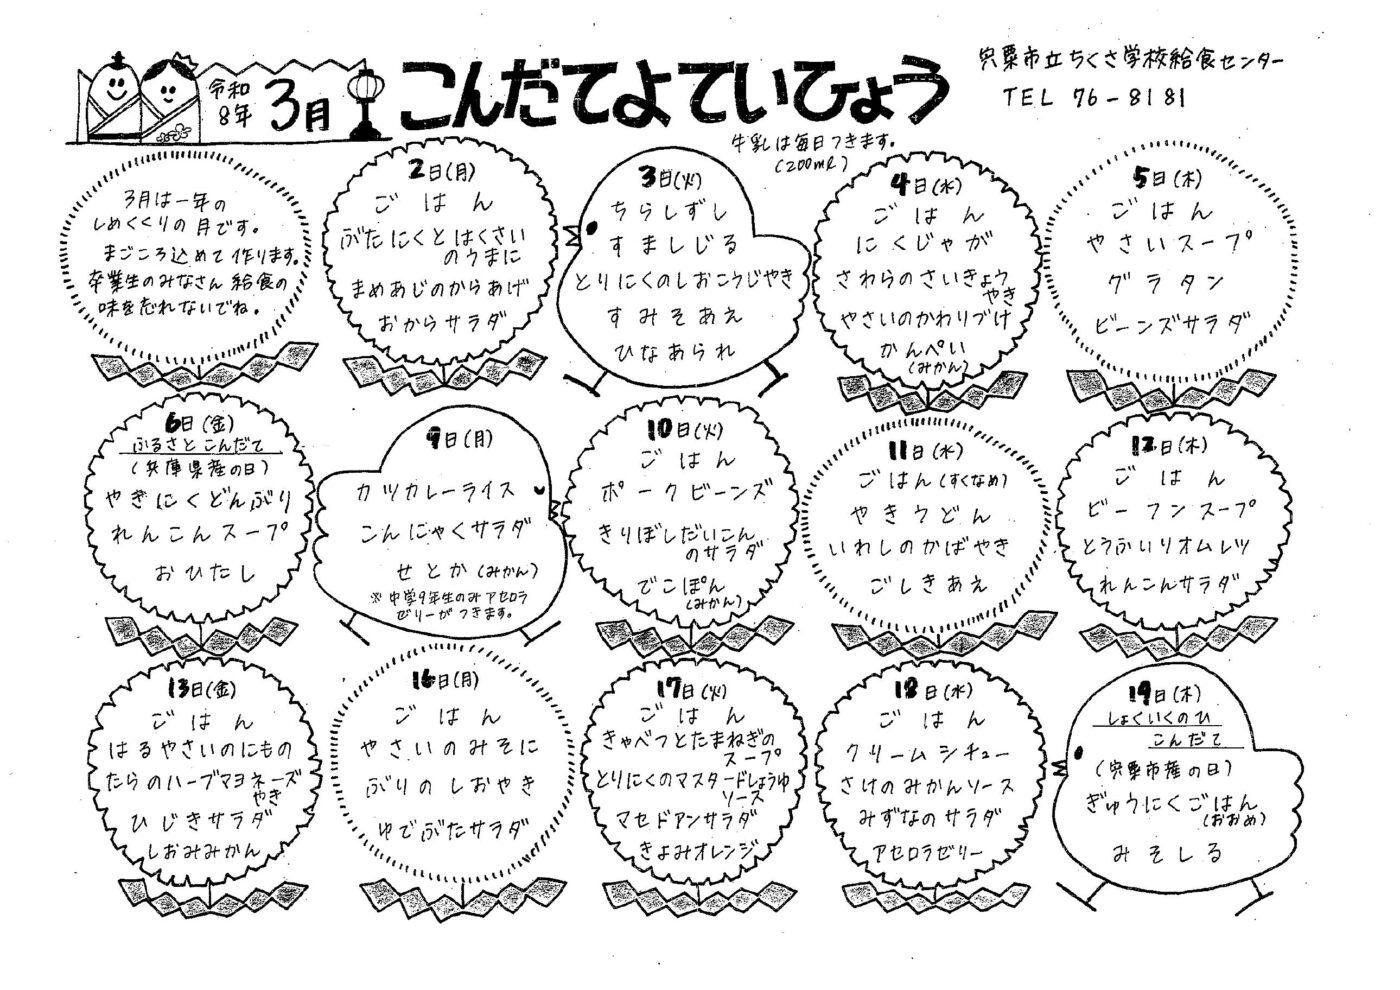 令和
8年
3月
こんだてよていひょう
宍粟市立ちくさ学校給食センター
TEL 76-8181
牛乳は毎日つきます。
(200ml)
3月は一年の
しめくくりの月です。
まごころ込めて作ります。
卒業生のみなさん給食の
味を忘れないでね。
2日(月)
ごはん
ぶたにくとはくさい
のうまに
まめあじのからあげ
おからサラダ
3日(火)
ちらしずし
すましじる
とりにくのしおこうじやき
すみそあえ
ひなあられ
4日(水)
ごはん
にくじゃが
さわらのさいきょう
やき
やさいのかわりづけ
かんぺい
(みかん)
5日(木)
ごはん
やさいスープ
グラタン
ビーンズサラダ
6日(金)
ふるさとこんだて
(兵庫県産の日)
やきにくどんぶり
れんこんスープ
おひたし
9日(月)
カツカレーライス
こんにゃくサラダ
せとか(みかん)
※中学9年生のみアセロラ
ゼリーがつきます。
10日(火)
ごはん
ポークビーンズ
きりぼしだいこん
のサラダ
でこぽん
(みかん)
11日(水)
ごはん(すくなめ)
やきうどん
いわしのかばやき
ごしきあえ
12日(木)
ごはん
ビーフンスープ
とうふいりオムレツ
れんこんサラダ
13日(金)
ごはん
はるやさいのにもの
たらのハーブマヨネーズ
やき
ひじきサラダ
しおみみかん
16日(月)
ごはん
やさいのみそに
ぶりのしおやき
ゆでぶたサラダ
17日(火)
ごはん
きゃべつとたまねぎの
スープ
とりにくのマスタードしょうゆ
ソース
マセドアンサラダ
きよみオレンジ
18日(水)
ごはん
クリームシチュー
さけのみかんソース
みずなのサラダ
アセロラゼリー
19日(木)
しょくいくのひ
こんだて
(宍粟市産の日)
ぎゅうにくごはん
(おおめ)
みそしる